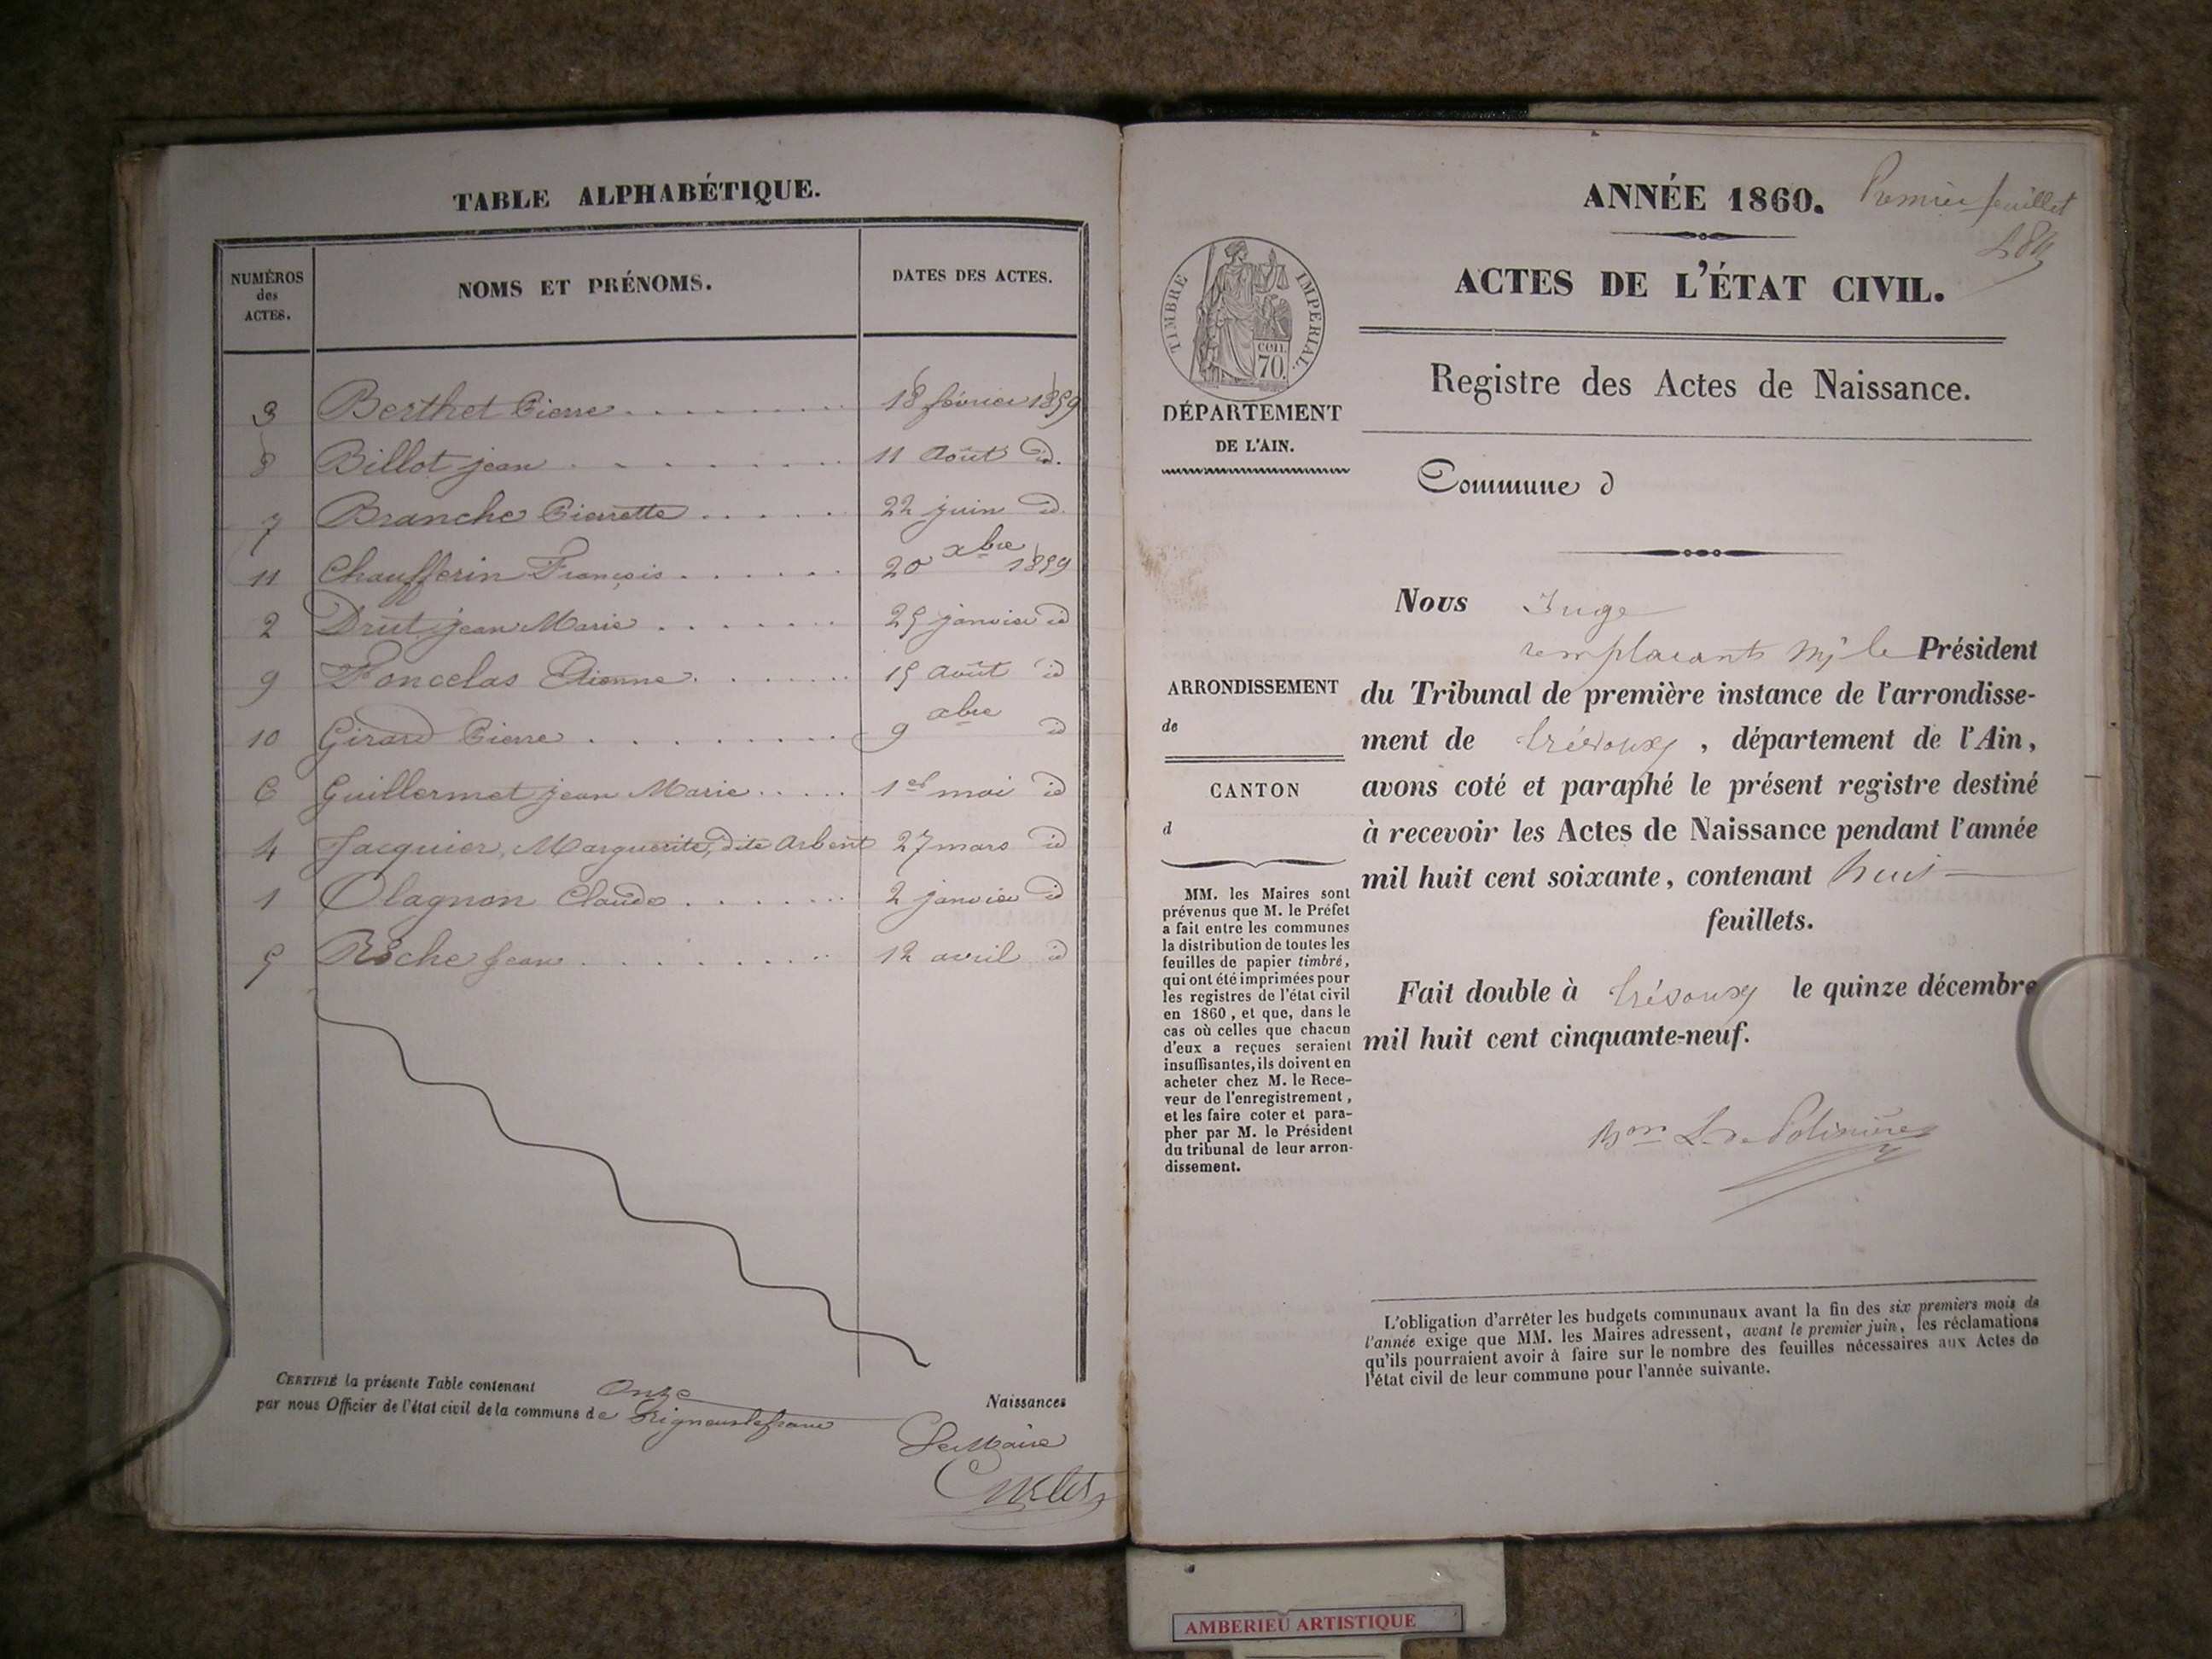 TABLE ALPHABÉTIQUE.
NUMÉROS
des
ACTES.
NOMS ET PRÉNOMS.
DATES DES ACTES.
3 Berthet Pierre 18 février 1859
8 Billot jean 11 Août id.
7 Branche Pierrette 22 juin id.
11 Chaufferin François 20 xbre 1859
2 Drut jean Marie 25 janvier id
9 Foncelas Etienne 15 Août id
10 Girard Pierre 9 xbre id
6 Guillermet jean Marie 1er mai id
4 Jacquier, Marguerite, dite Arbent 27 mars id
1 Olagnon Claude 2 janvier id
5 Roche jean 12 avril id
CERTIFIÉ la présente Table contenant Onze Naissances
par nous Officier de l'état civil de la commune de
Le Maire
Premier feuillet
ANNÉE 1860.
ACTES DE L'ÉTAT CIVIL.
Registre des Actes de Naissance.
TIMBRE IMPERIAL.
CEN. 70.
DÉPARTEMENT
DE L'AIN.
Commune d
Nous Juge
remplaçant Mr le Président
du Tribunal de première instance de l'arrondisse-
ment de Trévoux, département de l'Ain,
avons coté et paraphé le présent registre destiné
à recevoir les Actes de Naissance pendant l'année
mil huit cent soixante, contenant huit
feuillets.
Fait double à Trévoux le quinze décembre
mil huit cent cinquante-neuf.
Bon L. de Polinière
ARRONDISSEMENT
de
CANTON
d
MM. les Maires sont
prévenus que M. le Préfet
a fait entre les communes
la distribution de toutes les
feuilles de papier timbré,
qui ont été imprimées pour
les registres de l'état civil
en 1860, et que, dans le
cas où celles que chacun
d'eux a reçues seraient
insuffisantes, ils doivent en
acheter chez M. le Rece-
veur de l'enregistrement,
et les faire coter et para-
pher par M. le Président
du tribunal de leur arron-
dissement.
L'obligation d'arrêter les budgets communaux avant la fin des six premiers mois de
l'année exige que MM. les Maires adressent, avant le premier juin, les réclamations
qu'ils pourraient avoir à faire sur le nombre des feuilles nécessaires aux Actes de
l'état civil de leur commune pour l'année suivante.
AMBERIEU ARTISTIQUE